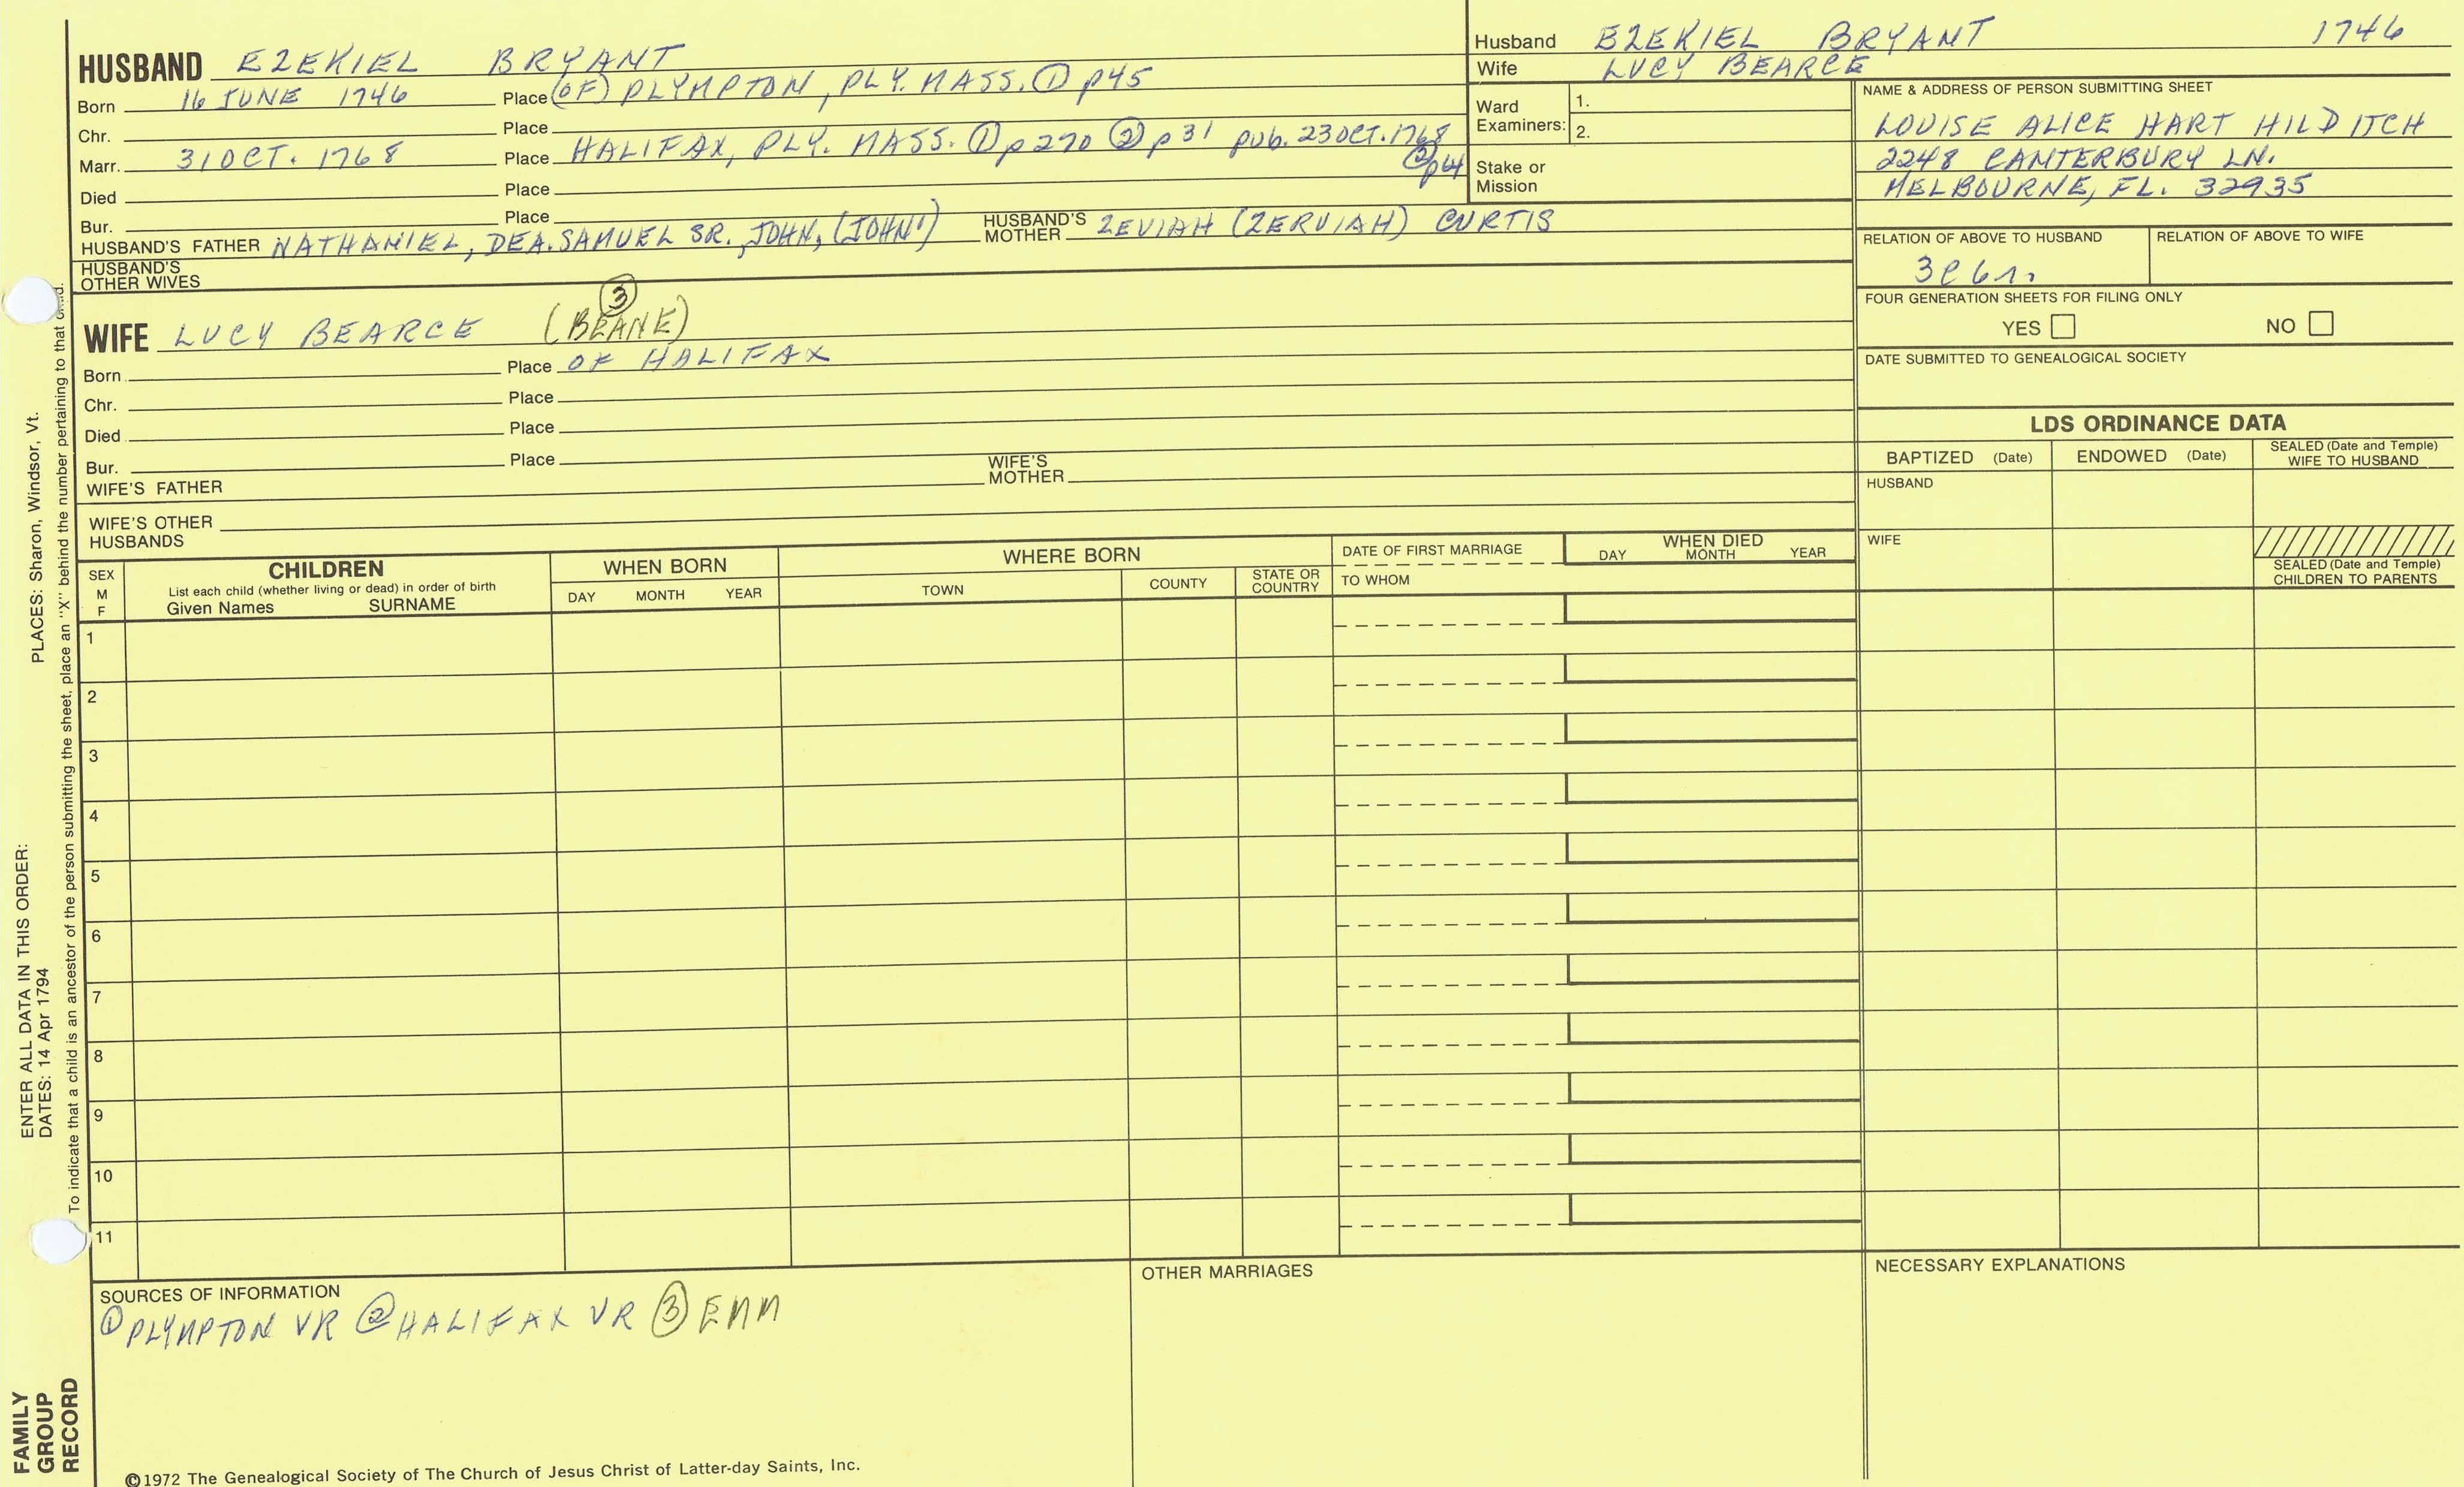 HUSBAND EZEKIEL BRYANT
Born 16 JUNE 1746 Place (OF) PLYMPTON, PLY. MASS. ① p45
Chr. Place
Marr. 31 OCT. 1768 Place HALIFAX, PLY. MASS. ① p270 ② p31 pub. 23 OCT. 1768
② p4
Died Place
Bur. Place
HUSBAND'S FATHER NATHANIEL, DEA. SAMUEL SR., JOHN, (JOHN¹) HUSBAND'S MOTHER ZEVIAH (ZERVIAH) CURTIS
HUSBAND'S OTHER WIVES
③
WIFE LUCY BEARCE (BEANE)
Born Place OF HALIFAX
Chr. Place
Died Place
Bur. Place
WIFE'S FATHER WIFE'S MOTHER
WIFE'S OTHER HUSBANDS
Husband EZEKIEL BRYANT 1746
Wife LUCY BEARCE
Ward Examiners: 1.
2.
Stake or Mission
NAME & ADDRESS OF PERSON SUBMITTING SHEET
LOUISE ALICE HART HILDITCH
2248 CANTERBURY LN.
MELBOURNE, FL. 32935
RELATION OF ABOVE TO HUSBAND RELATION OF ABOVE TO WIFE
3C6r.
FOUR GENERATION SHEETS FOR FILING ONLY
YES NO
DATE SUBMITTED TO GENEALOGICAL SOCIETY
LDS ORDINANCE DATA
BAPTIZED (Date) ENDOWED (Date) SEALED (Date and Temple) WIFE TO HUSBAND
HUSBAND
WIFE
SEALED (Date and Temple) CHILDREN TO PARENTS
SEX M F
CHILDREN
List each child (whether living or dead) in order of birth
Given Names SURNAME
WHEN BORN
DAY MONTH YEAR
WHERE BORN
TOWN COUNTY STATE OR COUNTRY
DATE OF FIRST MARRIAGE
TO WHOM
WHEN DIED
DAY MONTH YEAR
1
2
3
4
5
6
7
8
9
10
11
SOURCES OF INFORMATION
① PLYMPTON VR ② HALIFAX VR ③ EMM
OTHER MARRIAGES
NECESSARY EXPLANATIONS
©1972 The Genealogical Society of The Church of Jesus Christ of Latter-day Saints, Inc.
FAMILY GROUP RECORD
ENTER ALL DATA IN THIS ORDER:
DATES: 14 Apr 1794 PLACES: Sharon, Windsor, Vt.
To indicate that a child is an ancestor of the person submitting the sheet, place an "X" behind the number pertaining to that child.